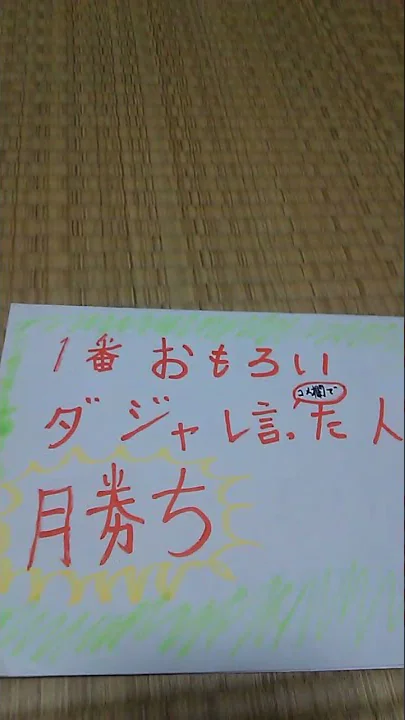 1番おもろい
コメ欄で
ダジャレ言った人
勝ち